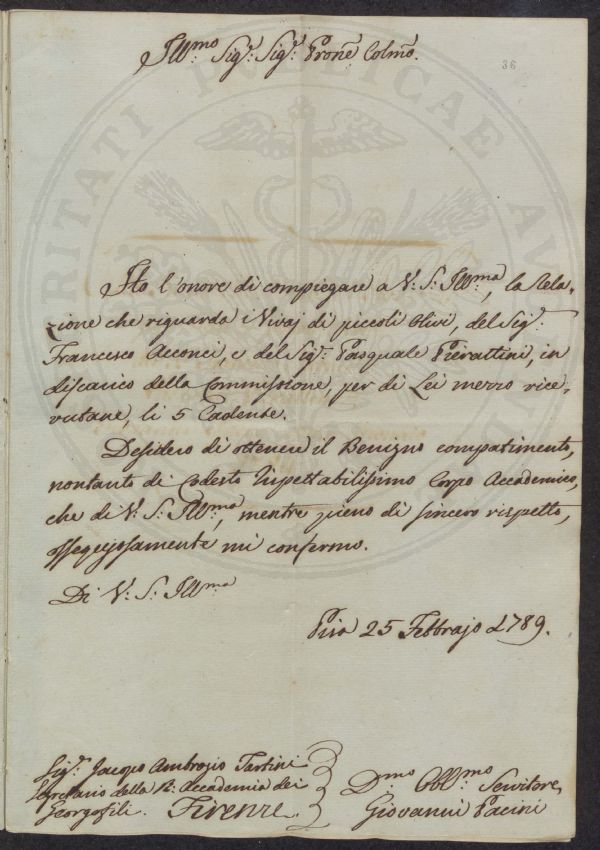 Ill.mo Sig.r Sig.r Prone Colmo.
36
Ho l'onore di compiegare a V: S: Ill:ma, la Rela-
zione che riguarda i Vivaj di piccoli Olivi, del Sig.r
Francesco Acconci, e del Sig.r Pasquale Pierattini, in
discarico della Commissione, per di Lei mezzo rice-
vutane, li 5 Cadente.
Desidero di ottenere il Benigno compatimento,
nontanto di codesto Rispettabilissimo Corpo Accademico,
che di V: S: Ill:ma, mentre pieno di sincero rispetto,
ossequiosamente mi confermo.
Di V: S: Ill:ma
Pisa 25 Febbrajo 1789.
Sig.r Jacopo Ambrogio Tartini
Segretario della R: Accademia dei
Georgofili. Firenze.
D:mo Obbl:mo Servitore
Giovanni Pacini